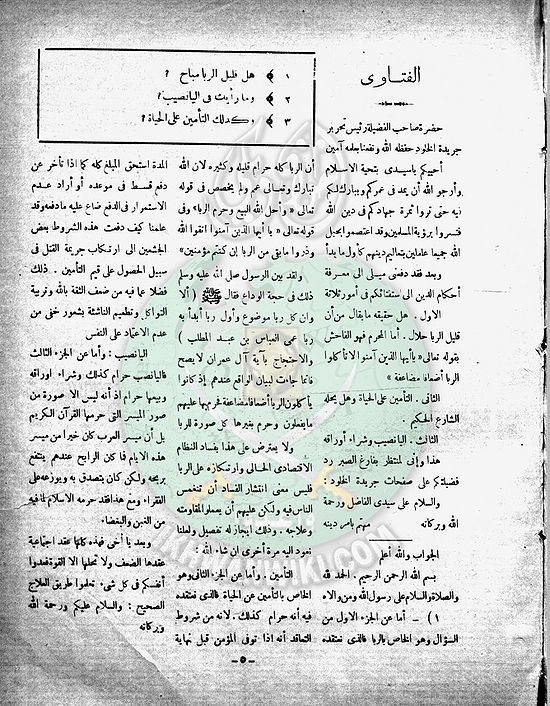 الفتـاوى
١ ﴾ هل قليل الربا مباح ؟
٢ ﴾ وما رأيك فى اليانصيب ؟
٣ ﴾ وكذلك التأمين على الحياة ؟
حضرة صاحب الفضيلة رئيس تحرير
جريدة الخلود حفظه الله ونفعنا بعلمه آمين
أحييكم يا سيدى بتحية الاسلام
وأرجو الله أن يمد فى عمركم ويبارك لكم
فيه حتى تروا ثمرة جهادكم فى دين الله
فتسروا برؤية المسلمين وقد اعتصموا بحبل
الله جميعا عاملين بتعاليم دينهم كأول ما بدأ
وبعد فقد دفعنى ميلى الى معرفة
أحكام الدين الى استفتائكم فى أمور ثلاثة
الاول . هل حقيقة ما يقال من أن
قليل الربا حلال . أما المحرم فهو الفاحش
بقوله تعالى « يا أيها الذين آمنوا لا تأكلوا
الربا أضعافا مضاعفة »
الثانى . التأمين على الحياة وهل يحله
الشارع الحكيم .
الثالث . اليانصيب وشراء أوراقه
هذا وإنى لمنتظر بفارغ الصبر رد
فضيلتكم على صفحات جريدة الخلود :
والسلام على سيدى الفاضل ورحمة
الله وبركاته مهتم بأمر دينه
الجواب والله أعلم
بسم الله الرحمن الرحيم . الحمد لله
والصلاة والسلام على رسول الله ومن والاه
١ ) – أما عن الجزء الاول من
السؤال وهو الخاص بالربا فالذى نعتقده
أن الربا كله حرام قليله وكثيره لان الله
تبارك وتعالى عمم ولم يخصص فى قوله
تعالى « وأحل الله البيع وحرم الربا » وفى
قوله تعالى « يا أيها الذين آمنوا اتقوا الله
وذروا ما بقى من الربا ان كنتم مؤمنين »
ولقد بين الرسول صلى الله عليه وسلم
ذلك فى حجة الوداع فقال ﷺ ( ألا
وان كل ربا موضوع وأول ربا أبدأ به
ربا عمى العباس بن عبد المطلب )
والاحتجاج بآية آل عمران لا يصح
فانما جاءت لبيان الواقع عندهم إذ كانوا
يأكلون الربا أضعافا مضاعفة فحرمها عليهم
ما يفعلون وحرم بغيرها كل صورة للربا
ولا يعترض على هذا بفساد النظام
الاقتصادى الحالى وارتكازه على الربا
فليس معنى انتشار الفساد أن تنغمس
الناس فيه ولكن عليهم أن يعملوا لمقاومته
وعلاجه . وذلك إيجاز له تفصيل ولعلنا
نعود اليه مرة أخرى ان شاء الله :
التأمين . أما عن الجزء الثانى وهو
الخاص بالتأمين عن الحياة فالذى نعتقده
فيه أنه حرام كذلك . لانه من شروط
التعاقد أنه إذا توفى المؤمن قبل نهاية
المدة استحق المبلغ كله كما اذا تأخر عن
دفع قسط فى موعده أو أراد عدم
الاستمرار فى الدفع ضاع عليه ما دفعه وقد
علمنا كيف دفعت هذه الشروط بعض
الجشعين الى ارتكاب جريمة القتل فى
سبيل الحصول على قيم التأمين . ذلك
فضلا عما فيه من ضعف الثقة بالله وتربية
التواكل وتطعيم الناشئة بشعور خفى من
عدم الاعتماد على النفس
اليانصيب : وأما عن الجزء الثالث
فاليانصيب حرام كذلك وشراء أوراقه
وبيعها حرام إذ أنه ليس الا صورة من
صور الميسر التى حرمها القرآن الكريم
بل أن ميسر العرب كان خيرا من ميسر
هذه الايام فا كان الرابح عندهم ينتفع
بربحه ولكن كان يتصدق به ويوزعه على
الفقراء ومع هذا فقد حرمه الاسلام لما فيه
من الغبن والبغضاء
وبعد يا أخى فهذه كلها عقد اجتماعية
عقدها الضعف ولا تحلها الا القوة فعدوا
أنفسكم فى كل شىء تعلموا طريق العلاج
الصحيح : والسلام عليكم ورحمة الله
وبركاته
– ٥ –
IKHWANWIKI.COM